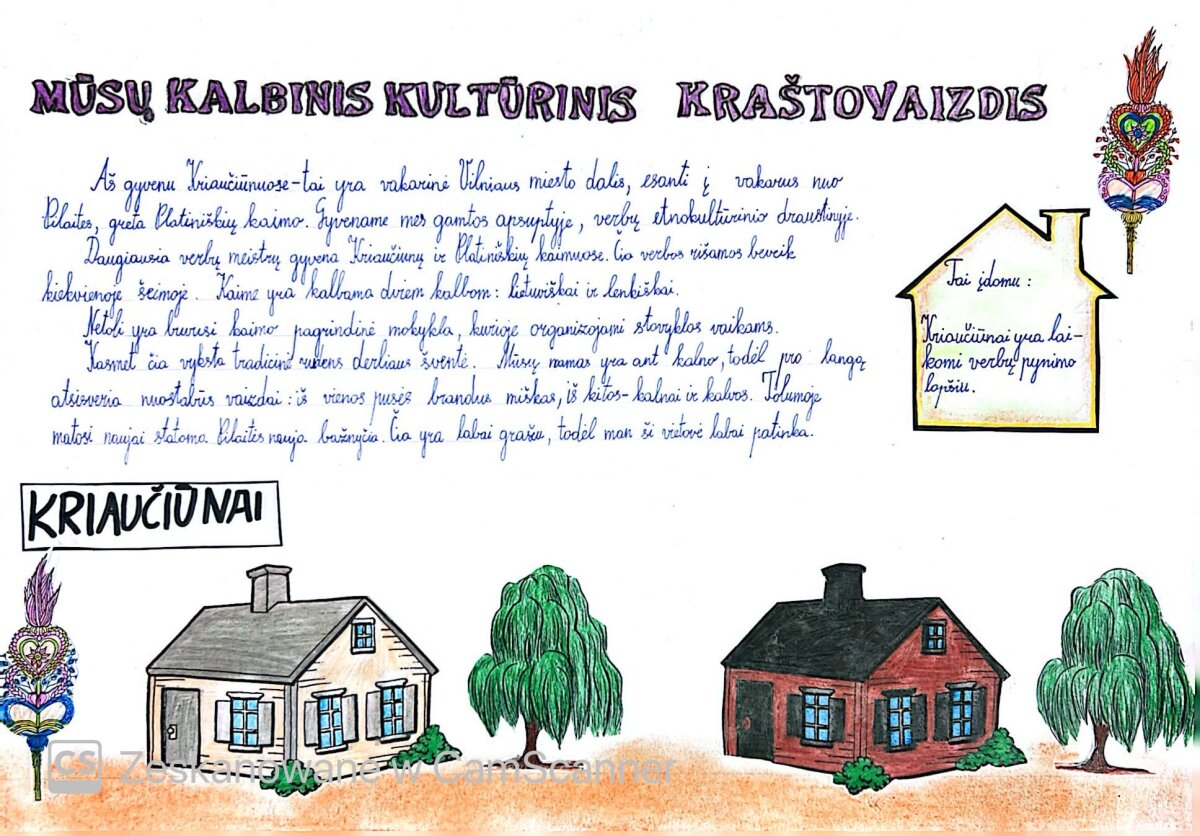 MŪSŲ KALBINIS KULTŪRINIS KRAŠTOVAIZDIS
Aš gyvenu Kriaučiūnuose-tai yra vakarinė Vilniaus miesto dalis, esanti į vakarus nuo
Pilaitės, greta Platiniškių kaimo. Gyvename mes gamtos apsuptyje, verbų etnokultūrinio draustinyje.
Daugiausia verbų meistrų gyvena Kriaučiūnų ir Platiniškių kaimuose. Čia verbos rišamos beveik
kiekvienoje šeimoje. Kaime yra kalbama dviem kalbom: lietuviškai ir lenkiškai.
Netoli yra buvusi kaimo pagrindinė mokykla, kurioje organizojami stovyklos vaikams.
Kasmet čia vyksta tradicinė rudens derliaus šventė. Mūsų namas yra ant kalno, todėl pro langą
atsisveria nuostabūs vaizdai: iš vienos pusės brandus miškas, iš kitos- kalnai ir kalvos. Tolumoje
matosi naujai statoma Pilaitės nauja bažnyčia. Čia yra labai gražu, todėl man ši vietovė labai patinka.
Tai įdomu:
Kriaučiūnai yra lai-
komi verbų pynimo
lopšiu.
KRIAUČIŪNAI
CS Zeskanowane w CamScanner